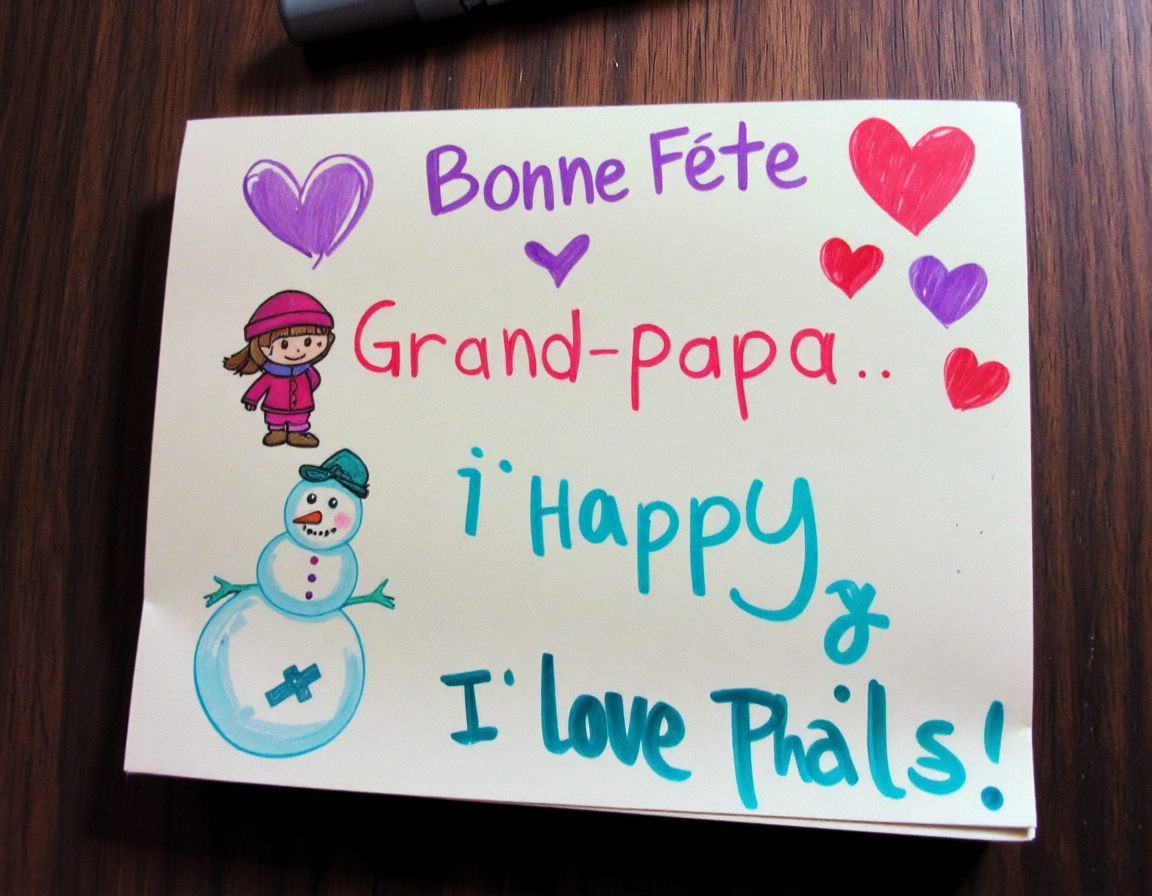 Bonne Féte
Grand-papa..
i Happy
y
I love Phals!